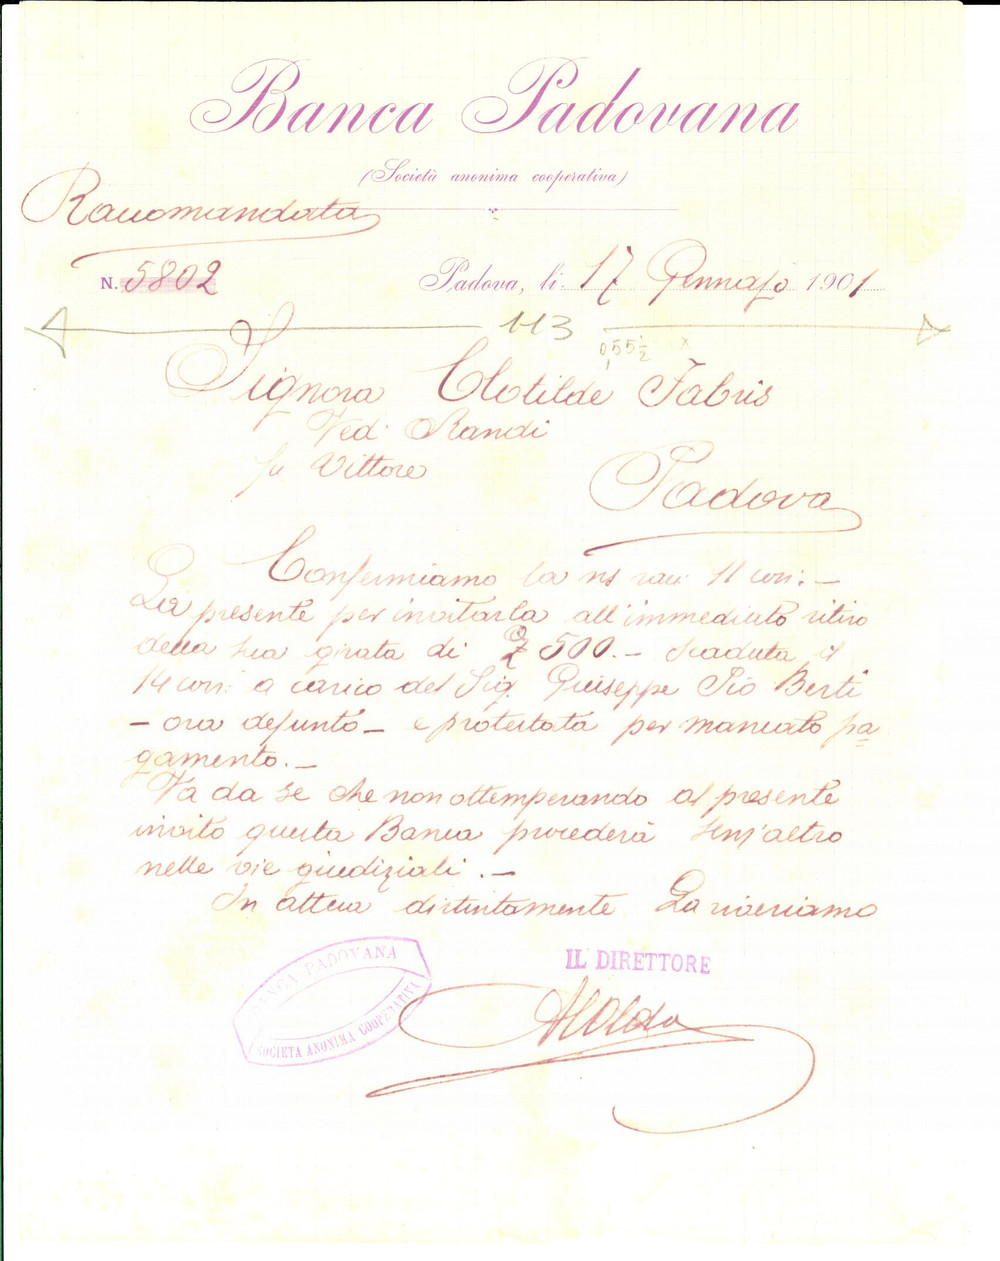 Banca Padovana
(Società anonima cooperativa)
Raccomandata
N. 5802
Padova, li 17 Gennajo 1901
113
0,55 1/2 x
Signora Clotilde Fabris
Ved. Randi
fu Vittore
Padova
Confermiamo la ns racc. 11 corr. –
La presente per invitarla all'immediato ritiro
della sua girata di £ 500.– scaduta il
14 corr. a carico del Sig. Giuseppe Pio Berti
– ora defunto – e protestata per mancato pa=
gamento. –
Va da se che non ottemperando al presente
invito questa Banca procederà senz'altro
nelle vie giudiziali. –
In attesa distintamente La riveriamo
BANCA PADOVANA
SOCIETÀ ANONIMA COOPERATIVA
IL DIRETTORE